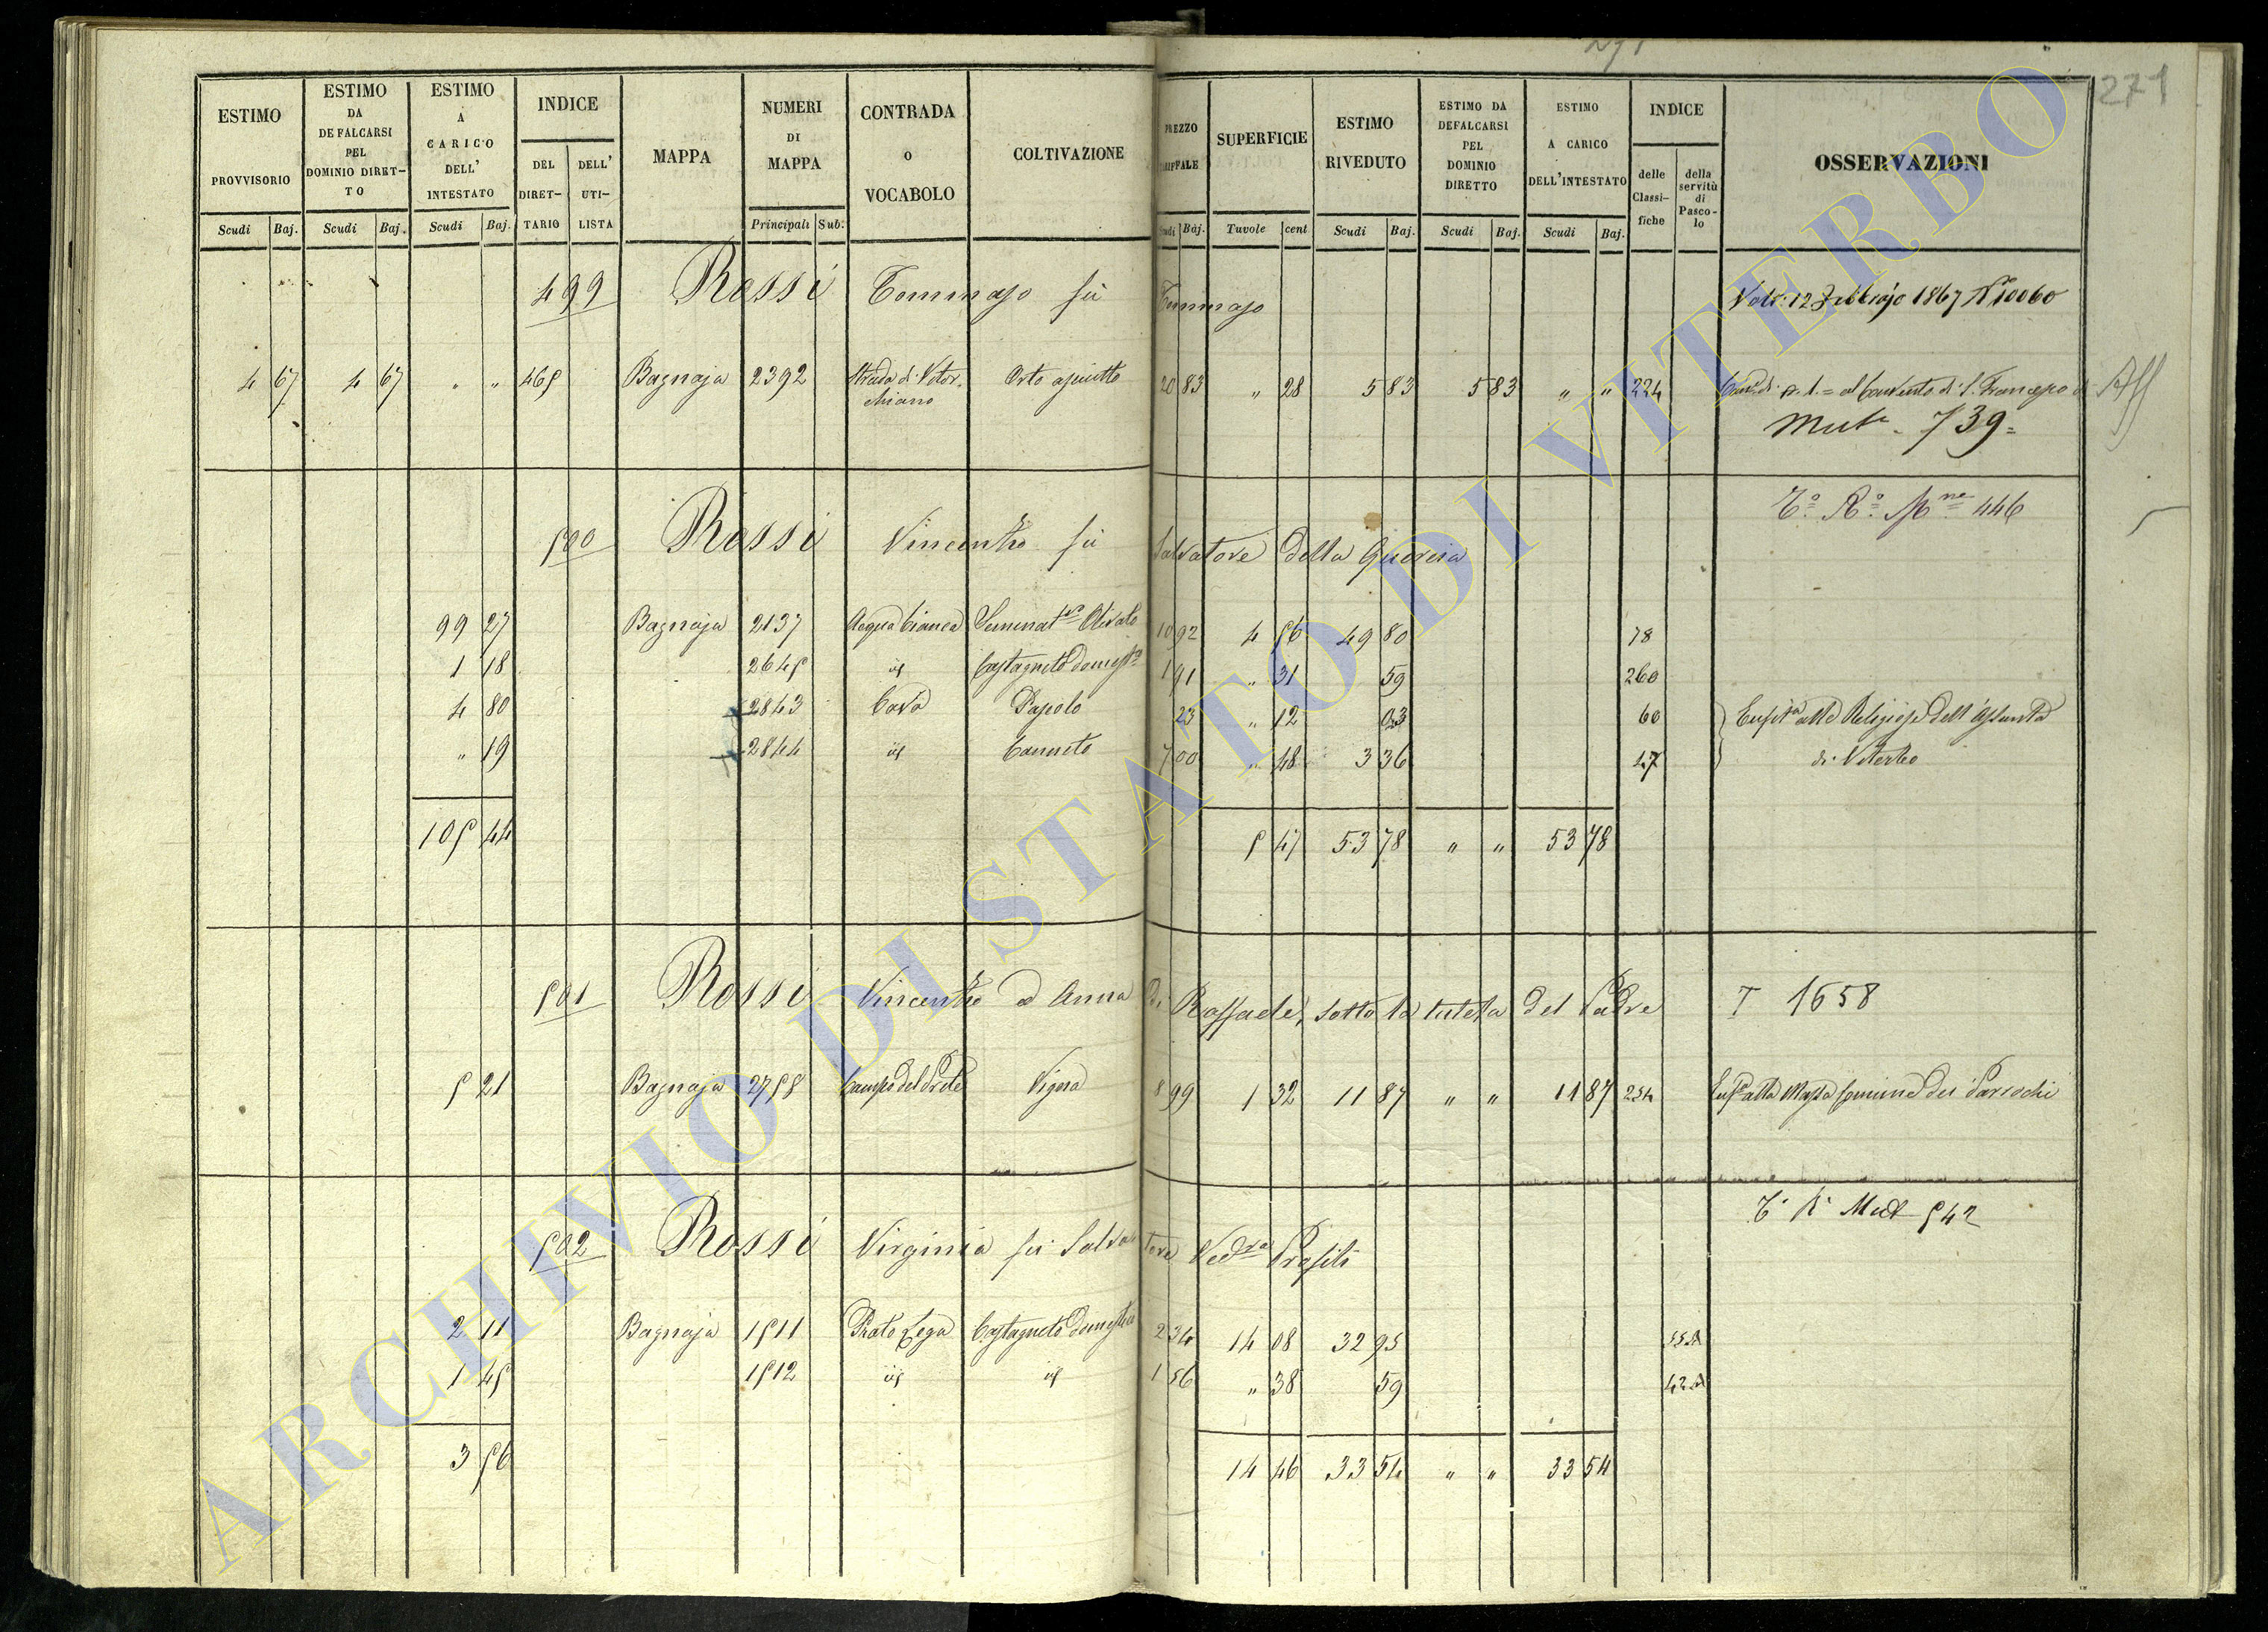 271
ESTIMO PROVVISORIO Scudi Baj.
ESTIMO DA DEFALCARSI PEL DOMINIO DIRETTO Scudi Baj.
ESTIMO A CARICO DELL' INTESTATO Scudi Baj.
INDICE DEL DIRETTARIO DELL' UTILISTA
MAPPA
NUMERI DI MAPPA Principali Sub.
CONTRADA O VOCABOLO
COLTIVAZIONE
PREZZO TARIFFALE Scudi Baj.
SUPERFICIE Tavole cent
ESTIMO RIVEDUTO Scudi Baj.
ESTIMO DA DEFALCARSI PEL DOMINIO DIRETTO Scudi Baj.
ESTIMO A CARICO DELL'INTESTATO Scudi Baj.
INDICE delle Classifiche della servitù di Pascolo
OSSERVAZIONI
499 Rossi Tommaso fù Tommaso 1867 N 10060
4 67 4 67 " " 465 Bagnaja 2392 Strada di Vitorchiano Orto asciutto 20 83 " 28 5 83 5 83 " " 224 al Convento di S. Francesco
Mut. 739=
T.° R.° M.ne 446
500 Rossi Vincenzo fù Salvatore della Quercia
99 27 Bagnaja 2137 Acqua bianca Seminat.vo Olivato 10 92 4 56 49 80 78
1 18 2645 id Castagneto domestco 1 91 " 31 59 260
4 80 2843 Cava Pascolo 23 " 12 03 60 alle Religiose dell'Assunta
" 19 2844 id Canneto 7 00 " 48 3 36 47 di Viterbo
105 44 5 47 53 78 " " 53 78
501 Rossi Vincenzo ed Anna di Raffaele, sotto la tutela del Padre T 1658
5 21 Bagnaja 2758 Campo del Prete Vigna 8 99 1 32 11 87 " " 11 87 254 alla Massa Comune dei Parrochi
T. R. Mut 542
502 Rossi Virginia fù Salvatore Ved.va Profili
2 11 Bagnaja 1511 Prato Lega Castagneto domestco 2 34 14 08 32 95
1 45 1512 id id 1 56 " 38 59
3 56 14 46 33 54 " " 33 54
ARCHIVIO DI STATO DI VITERBO